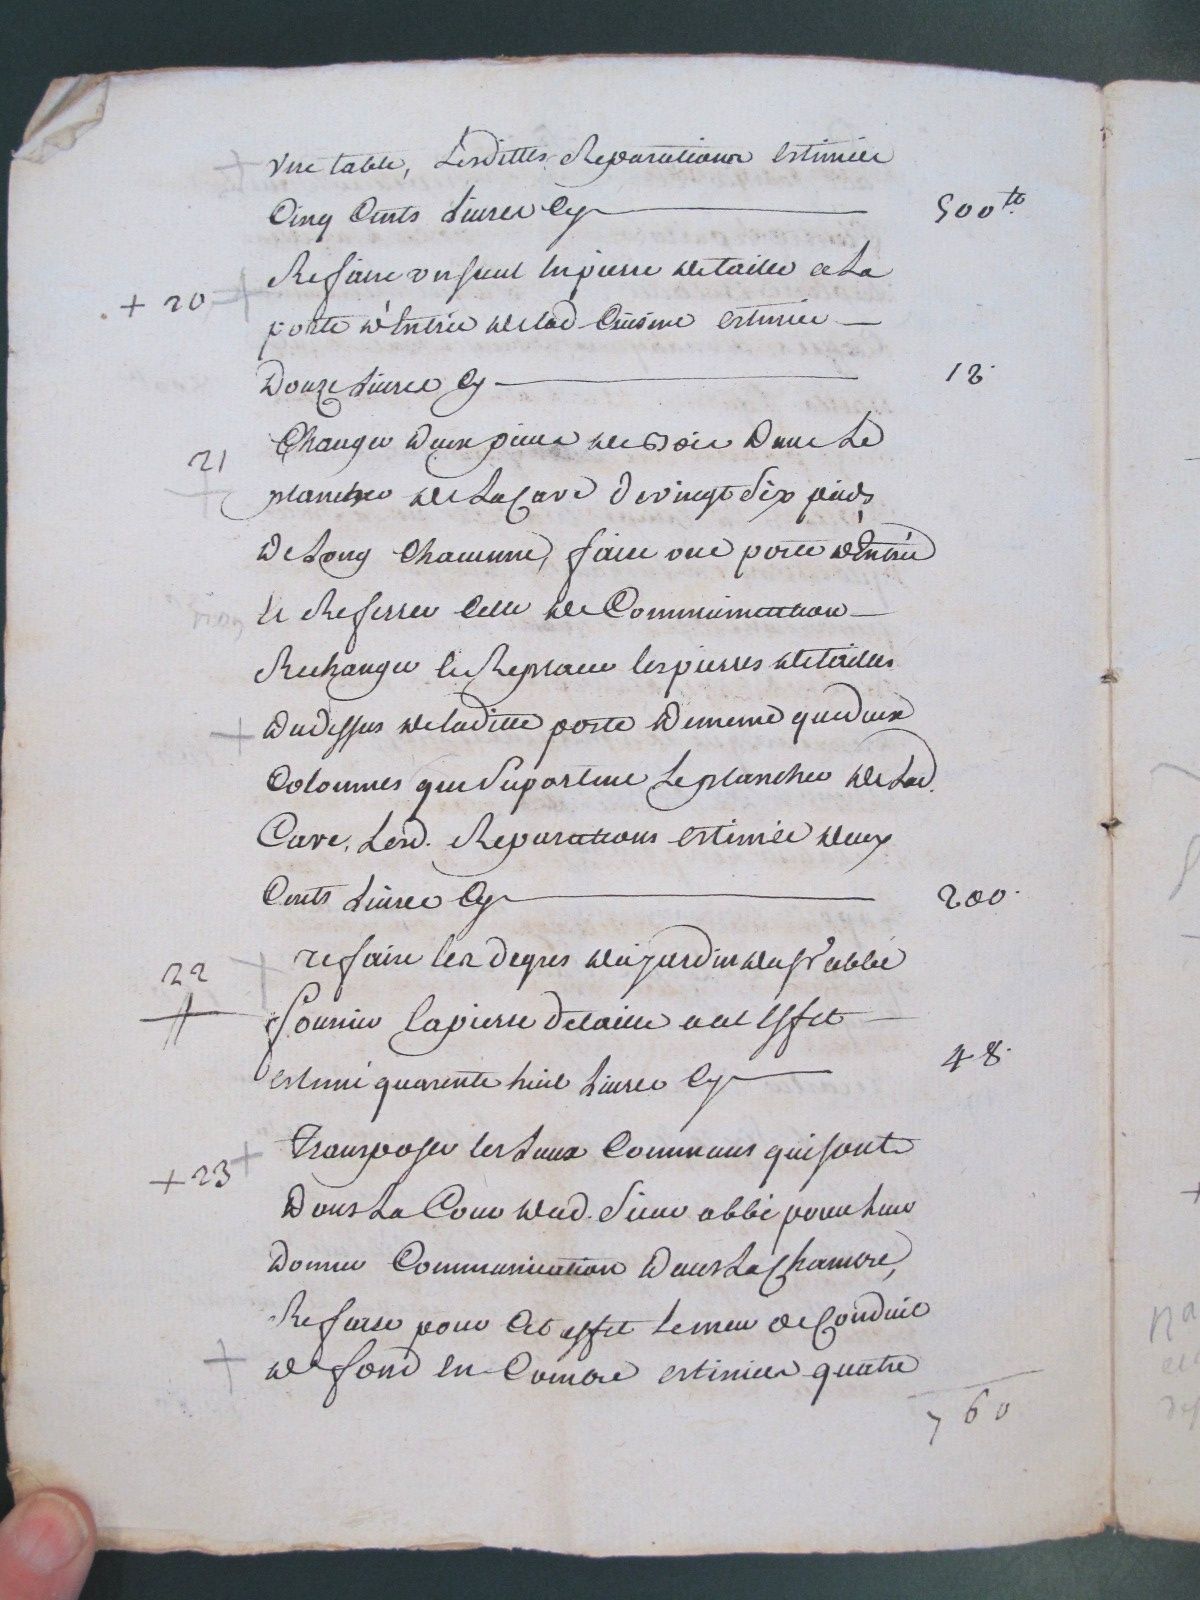 une table, Lesdittes Reparations estimées
Cinq Cents Livres Cy 500 tt
+ 20 Refaire un seuil en pierre de taille a La
porte d'Entrée de lad. Cuisine estimée
Douze Livres Cy 12.
21 Changer deux pieces de Bois dans Le
plancher de La Cave de vingt six pieds
de Long Chacunne, faire une porte d'Entrée
et Referrer Celle de Communication
Rechanger et Replacer les pierres de tailles
du dessus de laditte porte de meme que deux
Colonnes qui Suportent Le plancher de Lad.
Cave, Lesd. Reparations estimée deux
Cents Livres Cy 200.
22 refaire les degres du jardin du Sr abbé
fournir la pierre de taille a cet Effet
estimé quarente huit Livres Cy 48.
+ 23 Transposer les Lieux Communs qui sont
Dans La Cour dud. Sieur abbé pour Leur
Donner Communication Dans La Chambre,
Refaire pour Cet effet Le de Conduit
de fond en Comble estimées quatre
760